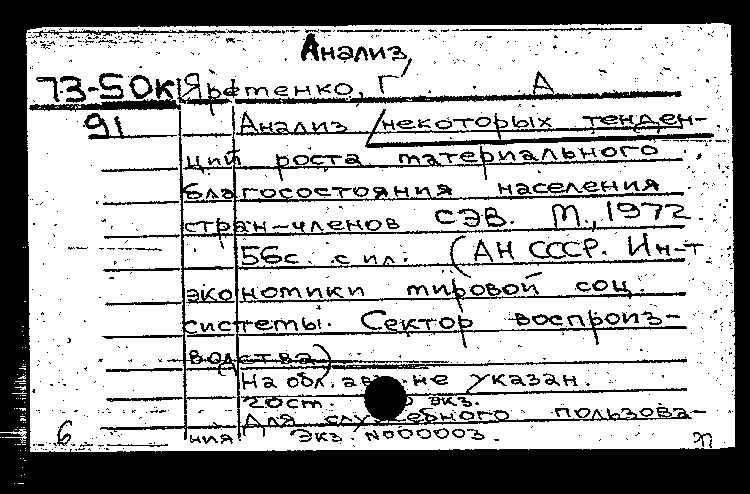 Анализ,
73-50к Яретенко, Г А
91 Анализ /некоторых тенден-
ций роста материального
благосостояния населения
стран-членов СЭВ. М., 1972
56с. с ил. (АН СССР. Ин-т
экономики мировой соц.
системы. Сектор воспроиз-
водства)
На обл. авт. не указан.
экз.
Для служебного пользова-
6 ния Экз. №000003.